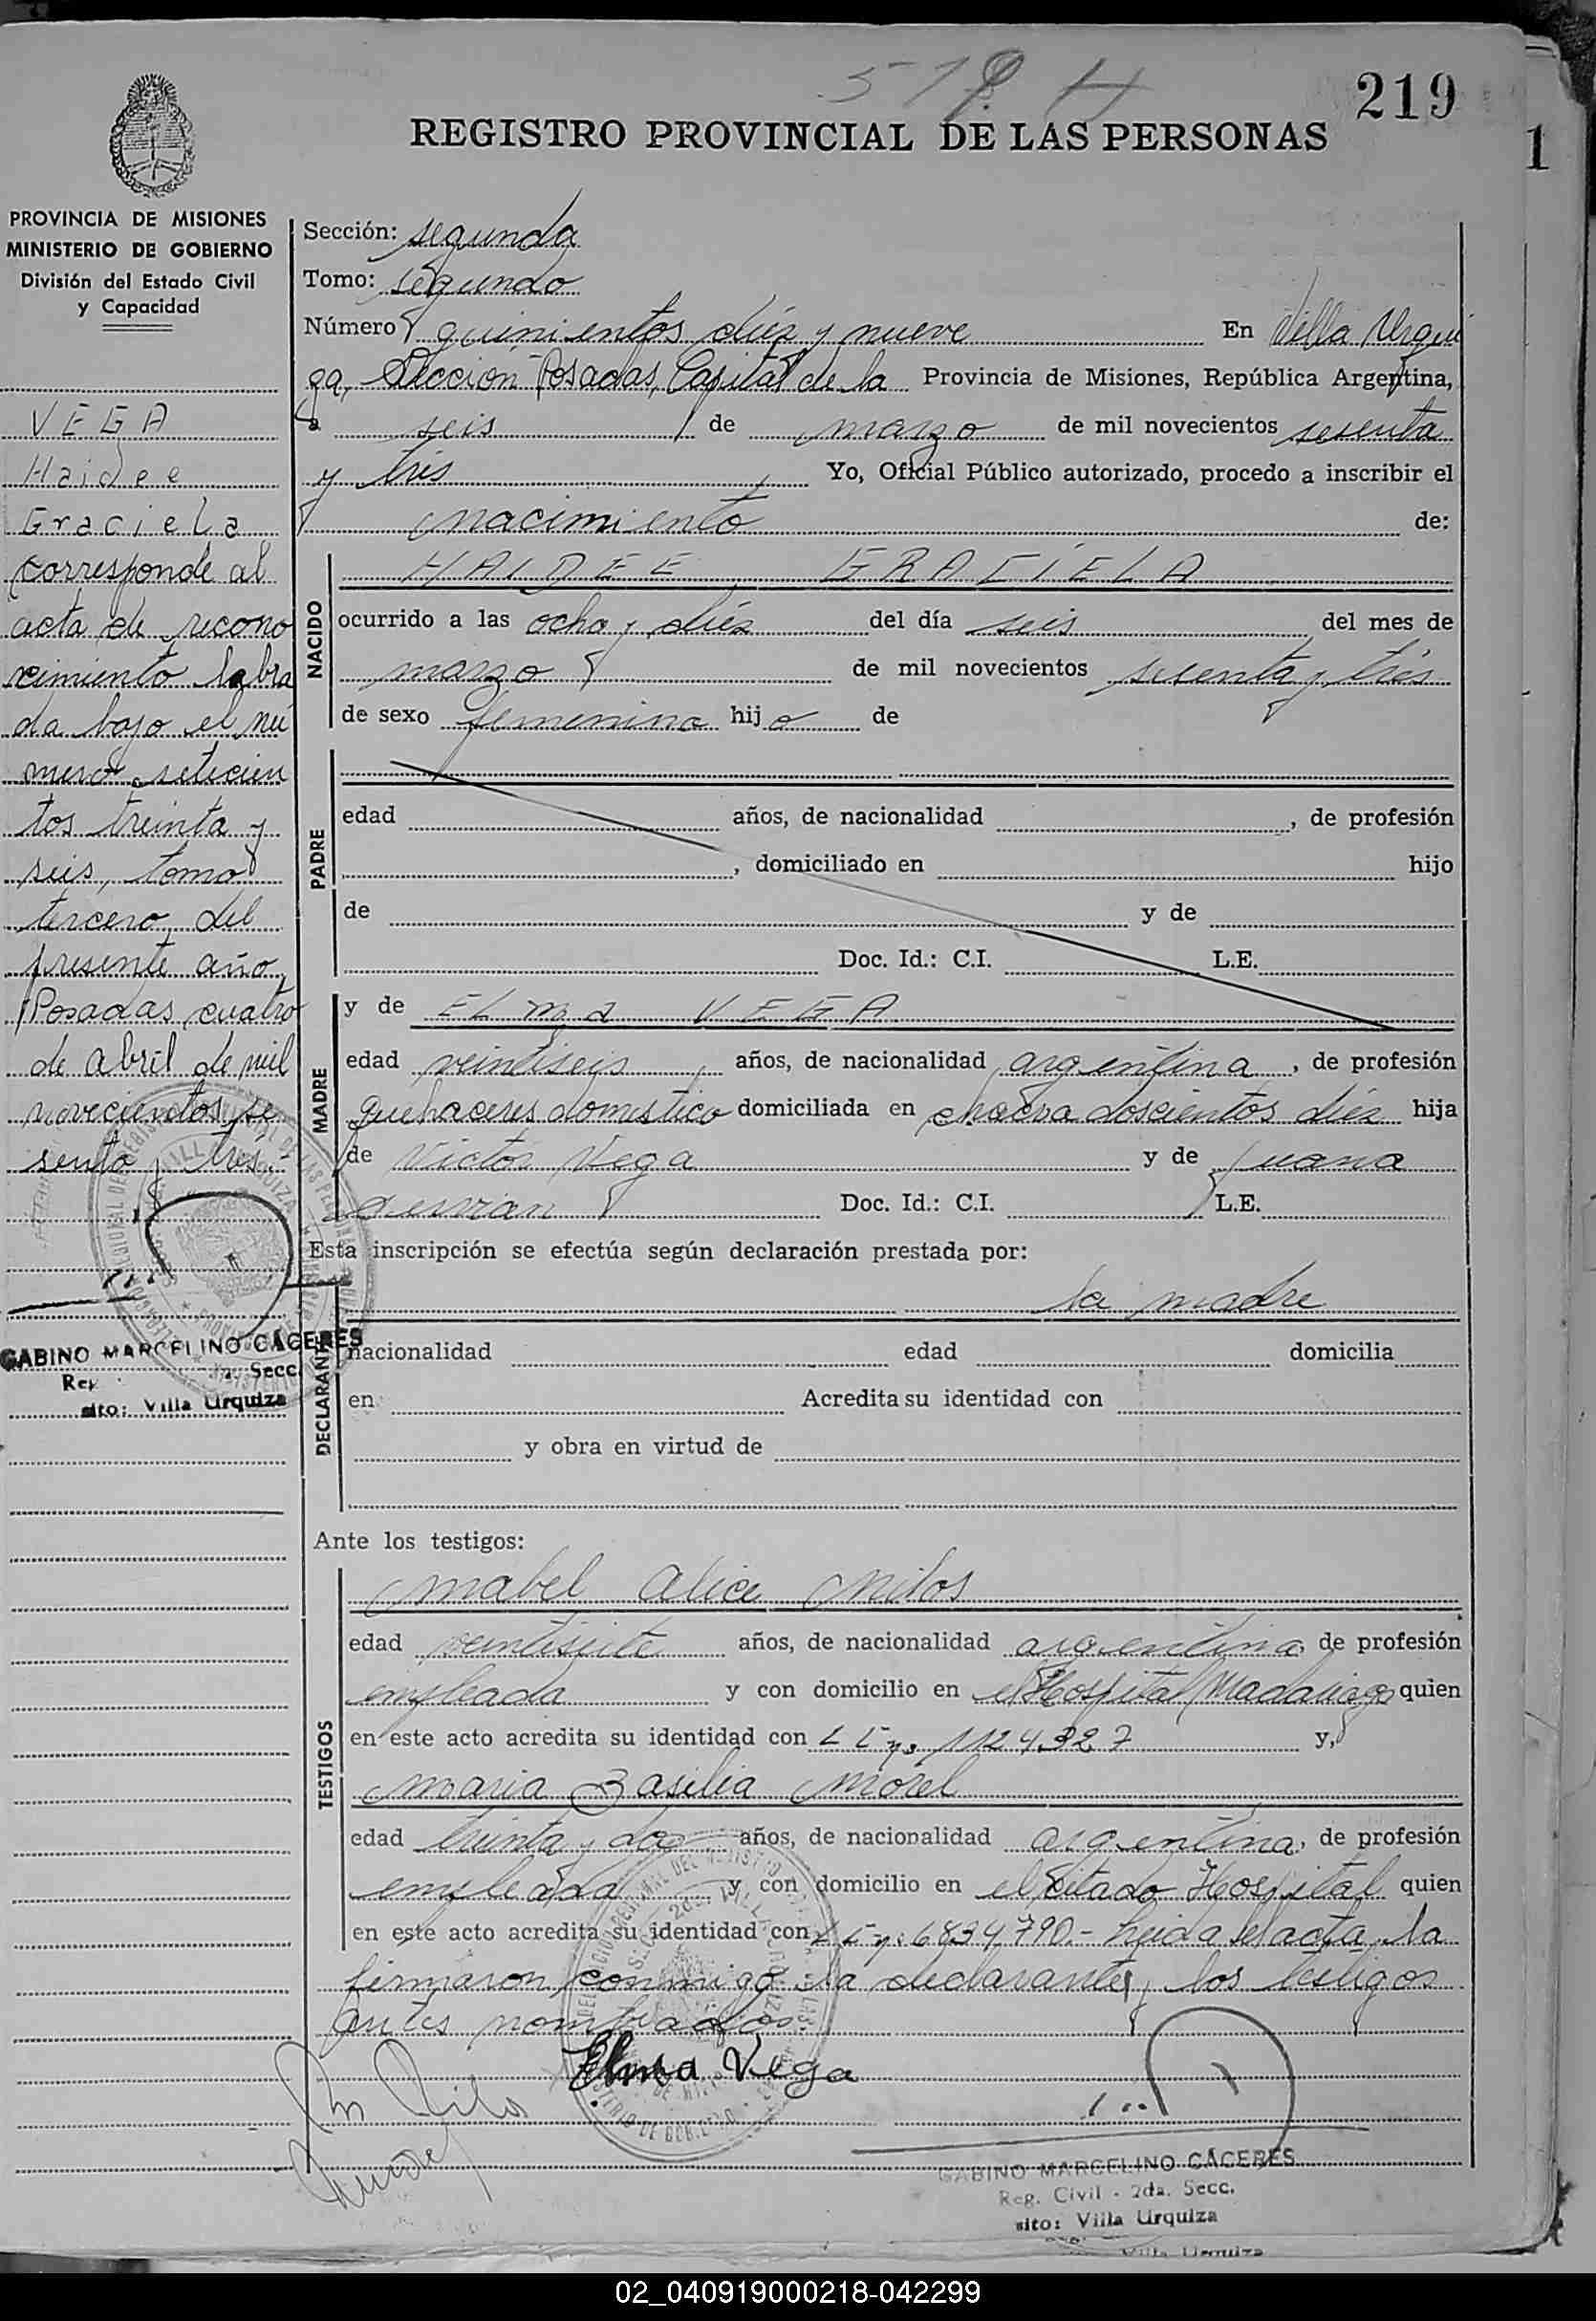 519 H
219
REGISTRO PROVINCIAL DE LAS PERSONAS
1
PROVINCIA DE MISIONES
MINISTERIO DE GOBIERNO
División del Estado Civil
y Capacidad
VEGA
Haidee
Graciela
corresponde al
acta de recono
cimiento labra
da bajo el nú
mero setecien
tos treinta y
seis, tomo
tercero del
presente año,
Posadas, cuatro
de abril de mil
novecientos se
senta y tres.-
GABINO MARCELINO CACERES
Secc.
sito: Villa Urquiza
Sección: segunda
Tomo: segundo
Número quinientos diéz y nueve En Villa Urqui
za, Sección Posadas, Capital de la Provincia de Misiones, República Argentina,
a seis de marzo de mil novecientos sesenta
y tres Yo, Oficial Público autorizado, procedo a inscribir el
nacimiento de:
NACIDO
HAIDEE GRACIELA
ocurrido a las ocho y diéz del día seis del mes de
marzo de mil novecientos sesenta y trés
de sexo femenino hija de
PADRE
edad años, de nacionalidad , de profesión
, domiciliado en hijo
de y de
Doc. Id.: C.I. L.E.
MADRE
y de ELma VEGA
edad veintiseis años, de nacionalidad argentina, de profesión
quehaceres domestico domiciliada en chacra doscientos diéz hija
de Victor Vega y de Juana
Doc. Id.: C.I. L.E.
Esta inscripción se efectúa según declaración prestada por:
DECLARANTE
la madre
nacionalidad edad domicilia
en Acredita su identidad con
y obra en virtud de
Ante los testigos:
TESTIGOS
Mabel Alice Milos
edad veintisiete años, de nacionalidad argentina, de profesión
empleada y con domicilio en el Hospital Madariaga quien
en este acto acredita su identidad con L C nº 1124327 y,
Maria Basilia Morel
edad treinta y dos años, de nacionalidad argentina, de profesión
empleada y con domicilio en el citado Hospital quien
en este acto acredita su identidad con L C nº 6834790.- Leida el acta, la
firmaron conmigo la declarante y los testigos
antes nombrados.
Elma Vega
GABINO MARCELINO CÁCERES
Reg. Civil - 2da. Secc.
sito: Villa Urquiza
Villa Urquiza
02_040919000218-042299